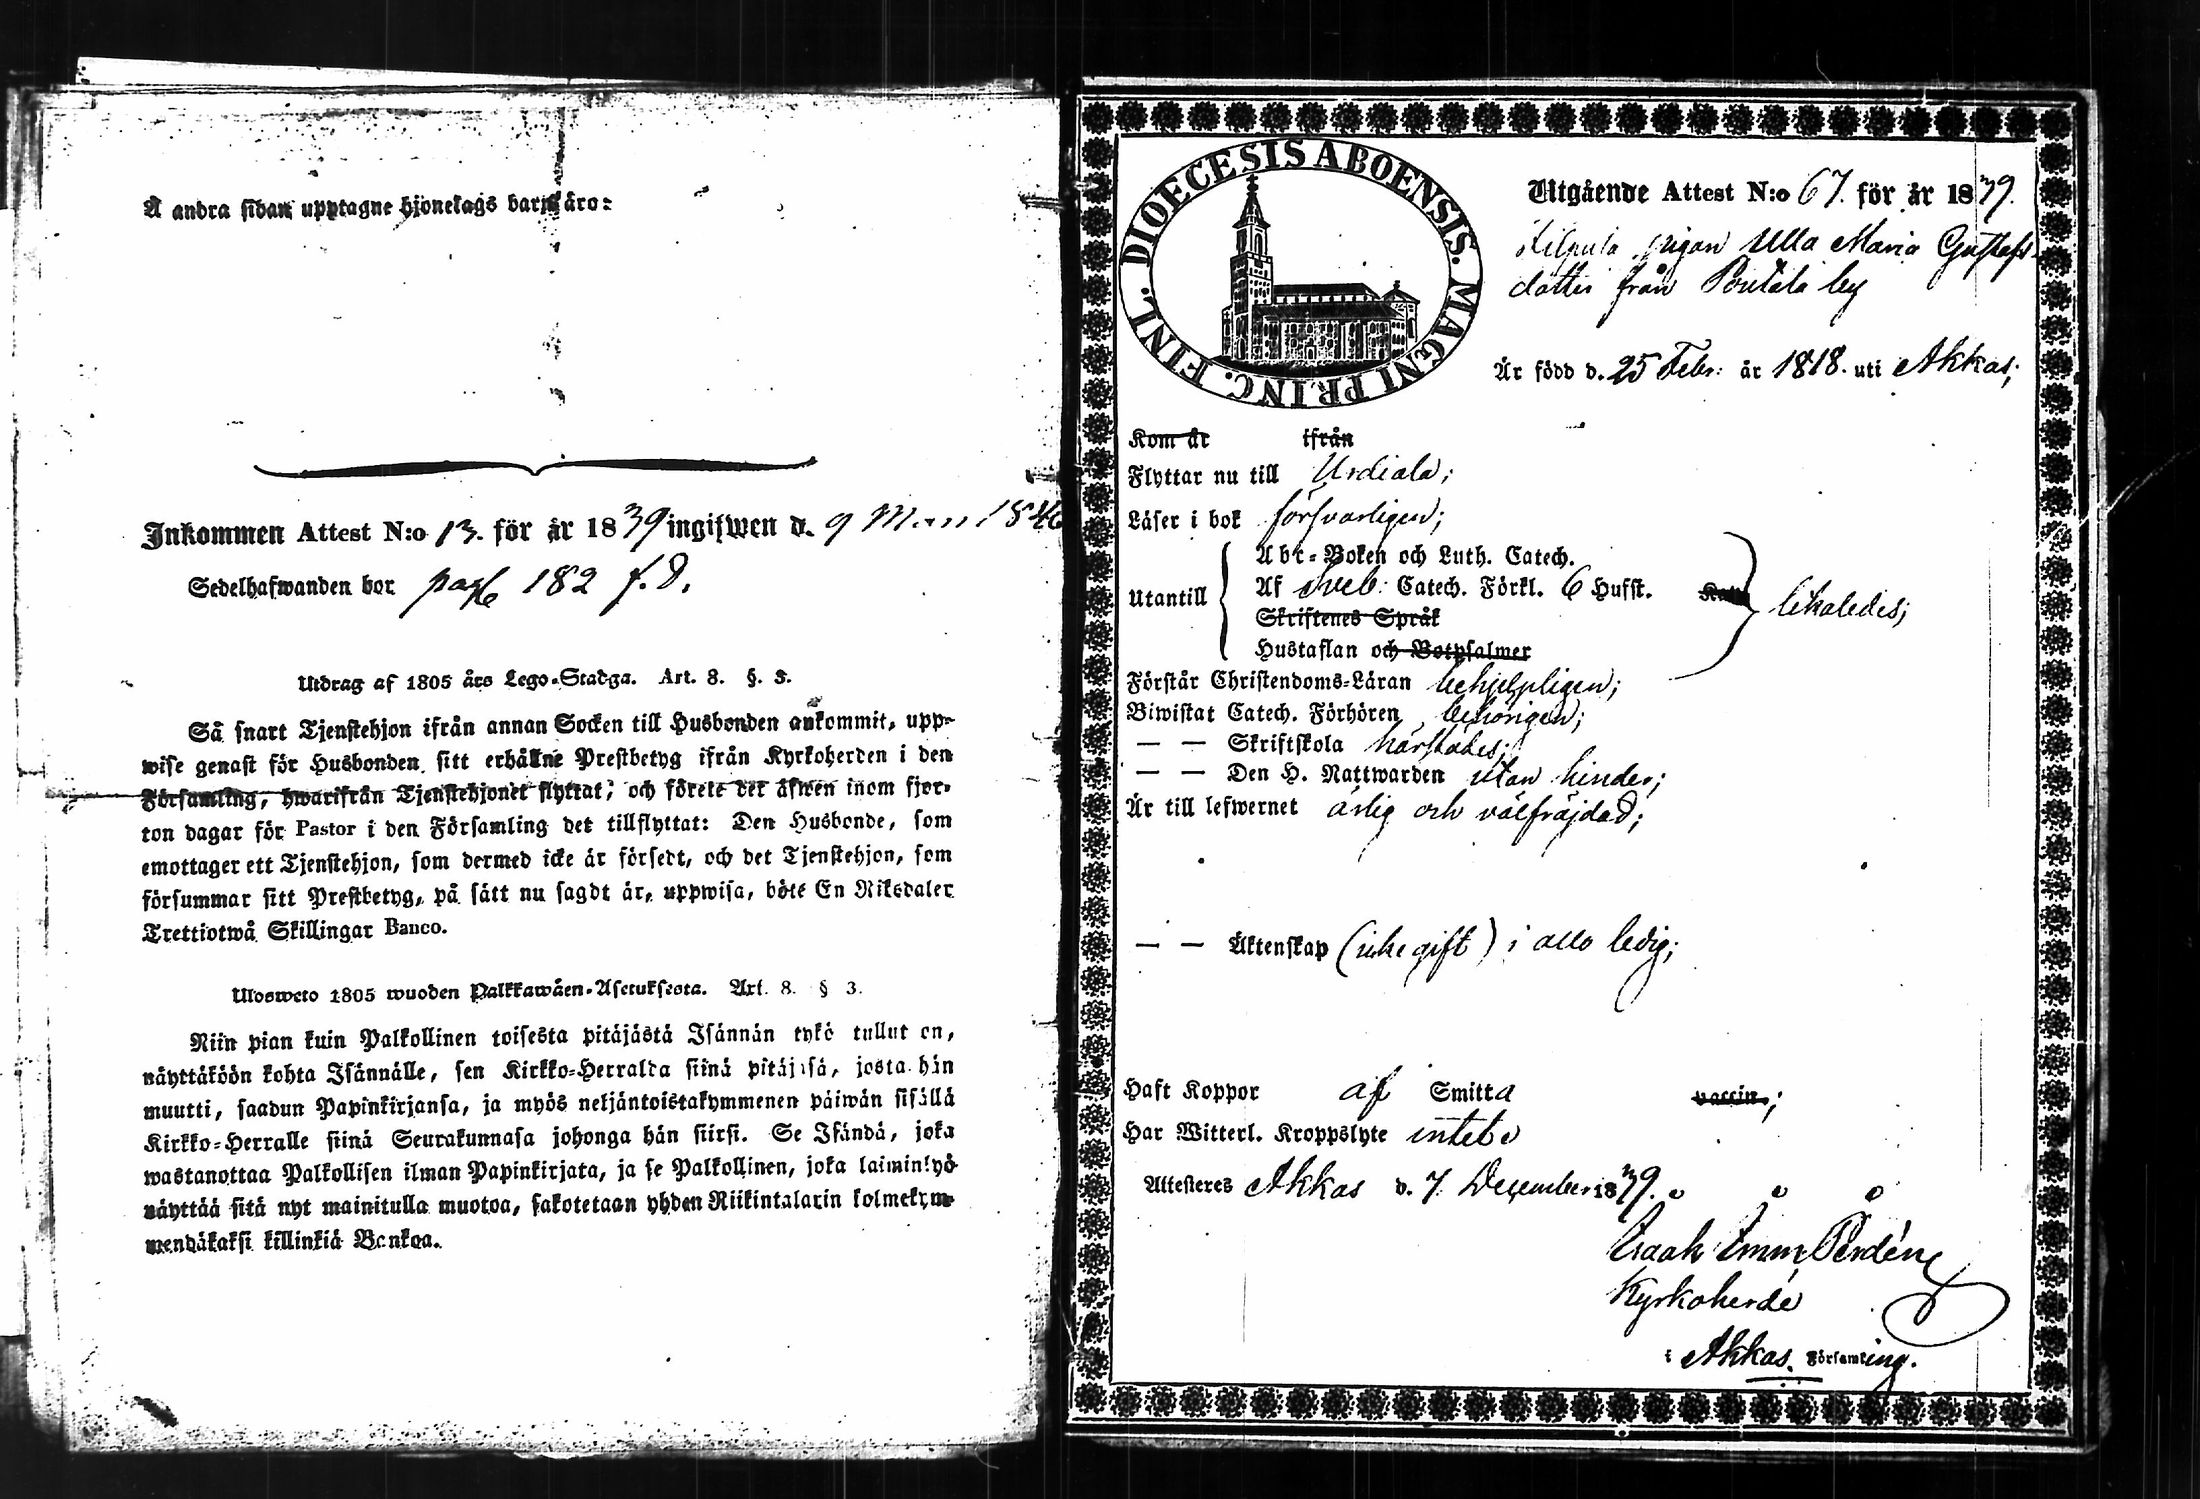 Å andra sidan upptagne hjonelags barn äro:
Inkommen Attest N:o 13. för år 1839 ingifwen d. 9 1840
Sedelhafwanden bor pag 182 f. d.
Utdrag af 1805 års Lego-Stadga. Art. 8. §. 3.
Så snart Tjenstehjon ifrån annan Socken till Husbonden ankommit, upp-
wise genast för Husbonden sitt erhållne Prestbetyg ifrån Kyrkoherden i den
Församling, hwarifrån Tjenstehjonet flyttat; och förete det äfwen inom fjor-
ton dagar för Pastor i den Församling det tillflyttat: Den Husbonde, som
emottager ett Tjenstehjon, som dermed icke är försedt, och det Tjenstehjon, som
försummar sitt Prestbetyg, på sätt nu sagdt är, uppwisa, böte En Riksdaler
Trettiotwå Skillingar Banco.
Ulosweto 1805 wuoden Palkkawäen-Asetuksesta. Art. 8. § 3.
Niin pian kuin Palkollinen toisesta pitäjästä Isännän tykö tullut on,
näyttäköön kohta Isännälle, sen Kirkko-Herralda siinä pitäjäsä, josta hän
muutti, saadun Papinkirjansa, ja myös neljäntoistakymmenen päiwän sisällä
Kirkko-Herralle siinä Seurakunnasa johonga hän siirsi. Se Isändä, joka
wastanottaa Palkollisen ilman Papinkirjata, ja se Palkollinen, joka laiminlyö
näyttää sitä nyt mainitulla muotoa, sakotetaan yhden Riikintalarin kolmekym-
mendäkaksi killinkiä Bankoa.
DIOECESIS ABOENSIS. MAGNI PRINC. FINL.
Utgående Attest N:o 67. för år 1839.
pigan Ulla Maria Gustafs-
dotter från by
Är född d. 25 Febr: år 1818. uti Akkas;
Kom år ifrån
Flyttar nu till Urdiala;
Läser i bok försvarligen;
Utantill
Abc-Boken och Luth. Catech.
Af Sveb: Catech. Förkl. 6 Hufst.
Skriftenes Språk
Hustaflan och Botpsalmer
likaledes;
Förstår Christendoms-Läran behjelpligen;
Biwistat Catech. Förhören behörigen;
— — Skriftskola härstädes;
— — Den H. Nattwarden utan hinder;
Är till lefwernet ärlig och välfräjdad;
— — Äktenskap (icke gift) i allo ledig;
Haft Koppor af Smitta vaccin;
Har Witterl. Kroppslyte intet
Attesteres Akkas d. 7 December 1839.
Isaak Imm
Kyrkoherde
i Akkas Församling.